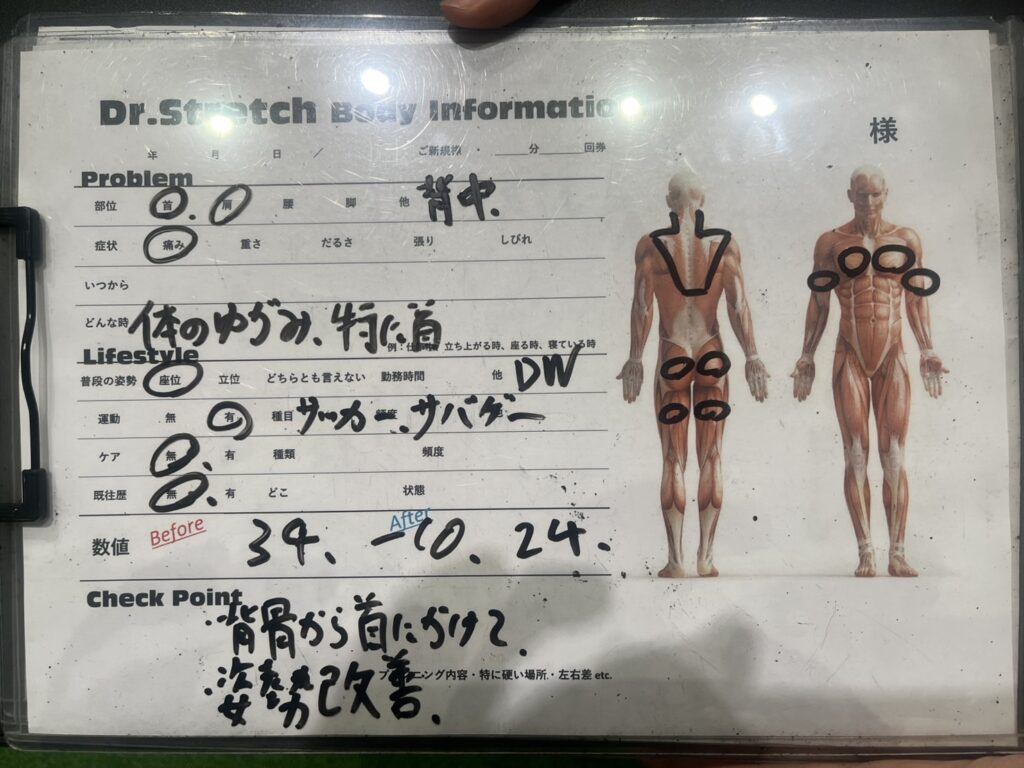 Dr.Stretch Body Information
様
年 月 日 / ご新規様 ・ 分 回券
Problem
部位 首 肩 腰 脚 他 背中
症状 痛み 重さ だるさ 張り しびれ
いつから
どんな時 体のゆがみ、特に首
例：仕事 立ち上がる時、座る時、寝ている時
Lifestyle
普段の姿勢 座位 立位 どちらとも言えない 勤務時間 他 DW
運動 無 有 種目 サッカー、サバゲー
ケア 無 有 種類 頻度
既往歴 無 有 どこ 状態
数値 Before 34、 After -10、24.
Check Point
・背骨から首にかけて
ニング内容・特に硬い場所・左右差 etc.
・姿勢改善、